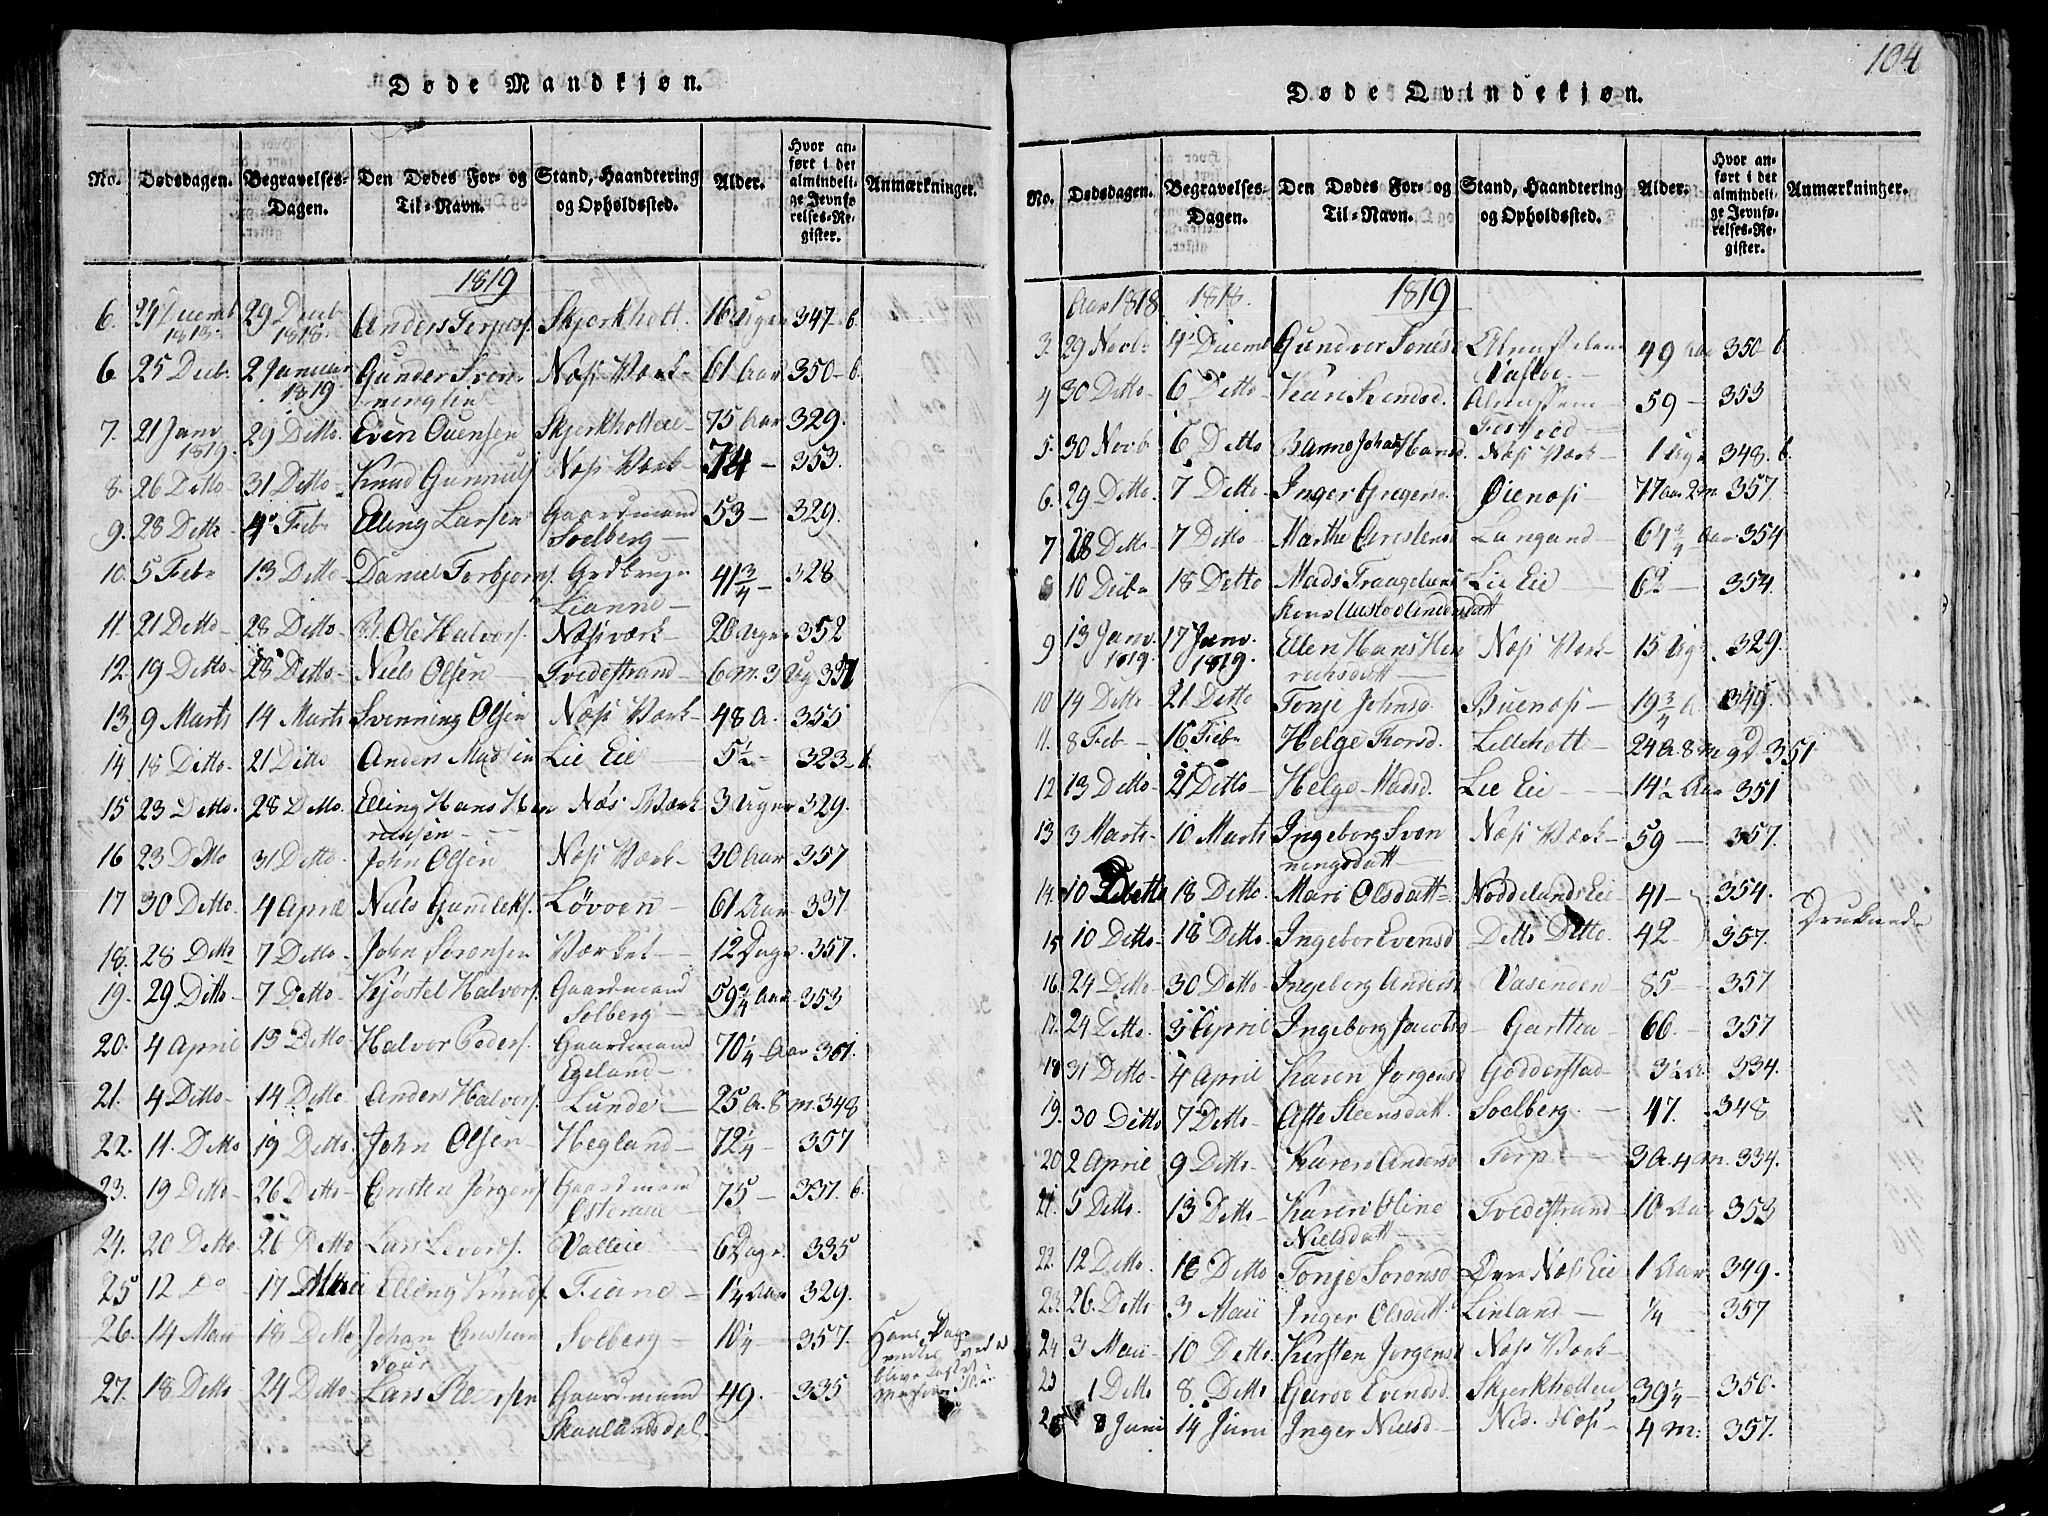 Døde Mandkjøn.
No. Dødsdagen. Begravelses-Dagen. Den Dødes For- og Til-Navn. Stand, Haandtering og Opholdssted. Alder. Hvor anført i det almindelige Jevnførelses-Register. Anmærkninger.
1819
6. 1818. 29 Decb. 1818. Anders Skjerkholt. 16 Uger 347-b.
6 25 Decb. 2 Januar 1819 Gunder Svenningsen Næss Værk 61 Aar 350-b.
7. 21 Janv 1819. 29 Ditto. Even Ovensen Skjerkholteie 75 Aar 329.
8. 26 Ditto 31 Ditto Knud Gunnuls. Næss Værk 74 - 353.
9. 28 Ditto 4 Feb. Elling Larsen Gaardmand Soelberg 53 - 329.
10. 5 Febr 13 Ditto Daniel Torbjørns. Lianne 41 3/4 - 328
11. 21 Ditto 28 Ditto Ole Halvors. Næssværk 20 Uger 352
12. 19 Ditto 28 Ditto Niels Olsen Tvedestrand 6 M. 3 Ug 351
13 9 Marts 14 Marts Svenning Olsen Næss Værk 48 A. 355
14 18 Ditto 21 Ditto Anders Madsen Lie Eie 5 1/2 323-b.
15 23 Ditto. 28 Ditto. Elling Hans Henriksen Næs Værk 3 Uger 329.
16 23 Ditto 31 Ditto. John Olsen Næss Værk 30 Aar 357
17 30 Ditto 4 April Niels Gundleks. Løvoen 61 Aar 337
18. 28 Ditto 7 Ditto John Sorensen Værket 12 Dage. 357.
19. 29 Ditto 7 Ditto Kjøstel Halvors. Gaardmand Solberg 59 3/4 Aar 353
20. 4 April 13 Ditto Halvor Peders. Gaardmand Egeland 70 1/4 Aar 361.
21. 4 Ditto 14 Ditto Anders Halvors. Lunde 25 A. 8 m. 348
22. 11. Ditto 19 Ditto. John Olsen Hegland 72 1/4 - 357
23. 19 Ditto 26 Ditto Jørgens. Gaardmand 75 - 337. b.
24. 20 Ditto 26 Ditto Lars Valleie 6 Dage. 335
25 12 Do 17 Maii Elling Knuds. Fiane 1/4 Aar 329.
26. 14 Maii 18 Ditto Johan Solberg 10 1/4 - 357.
27. 18 Ditto 24 Ditto Lars Gaardmand Skaalandsdal. 49. - 335
104
Døde Qvindekjøn.
No. Dødsdagen. Begravelses-Dagen. Den Dødes For- og Til-Navn. Stand, Haandtering og Opholdssted. Alder. Hvor anført i det almindelige Jevnførelses-Register. Anmærkninger.
Aar 1818 1818. 1819
3. 29 Novb. 4 Decemb Gundvor 49 Aar 350-b.
4 30 Ditto 6 Ditto 59 - 353
5. 30 Novb 6 Ditto Næss Værk 348. b.
6. 29 Ditto. 7 Ditto Inger Gregers. Øienæss 77 Aar 2 m 357
7 28 Ditto 7 Ditto Marthe Langand 67 3/4 Aar 354
10 Decb. 18 Ditto Mads Lie Eie 62 - 354.
9 13 Janv. 1819. 17 Janv. 1819. Ellen Hans Henrichsdatt Næss Værk 15 Uger. 329.
10 14 Ditto 21 Ditto Tonje Johnsd. Buenæss 19 3/4 A. 349.
11. 8 Feb 16 Febr Helge Thorsd. Lilleholt 24 A. 8 M 9 D. 351
12 13 Ditto 21 Ditto Helge Madsd. Lie Eie 14 1/2 Aar 351
13 3 Marts 10 Marts Ingeborg Svenningsdatt Næss Værk 59 - 357.
14. 10 Ditto 18 Ditto Mari Olsdatt Noddelands Eie 41 - 354.
Druknede
15 10 Ditto 18 Ditto. Ingebor Evensd Ditto Ditto. 42 - 357.
16. 24 Ditto 30 Ditto Ingeborg Anders. Vasenden 85 - 357
17. 24 Ditto 3 April Ingeborg Jacobs Garthen 66. - 357
18 31 Ditto 4 April Karen Jørgensd Godderstad 3 1/2 A 334.
19. 30 Ditto 7 Ditto Aste Steensdatt Soelberg. 47. - 348
20 2 April 9 Ditto Karen Andersd Torp 3 A. 4 M. 334.
21. 5 Ditto. 13 Ditto Karen Oline Nielsdatt Tvedestrand 10 Aar 353
22. 12 Ditto. 16 Ditto Tonje Sorensd Øvre Næss Eie 1 Aar 349.
23. 26. Ditto 3 Maii Inger Olsdatt Linland 1/4 - 357
24 3 Maii 10 Ditto Kirsten Jorgens. Næss Værk
25 1 Ditto 8. Ditto Guroe Evensd. Skjerkholteie 39 1/4 - 356.
26 8 Juni 14 Juni Inger Nielsd Ned. Næss 4 M. 357.